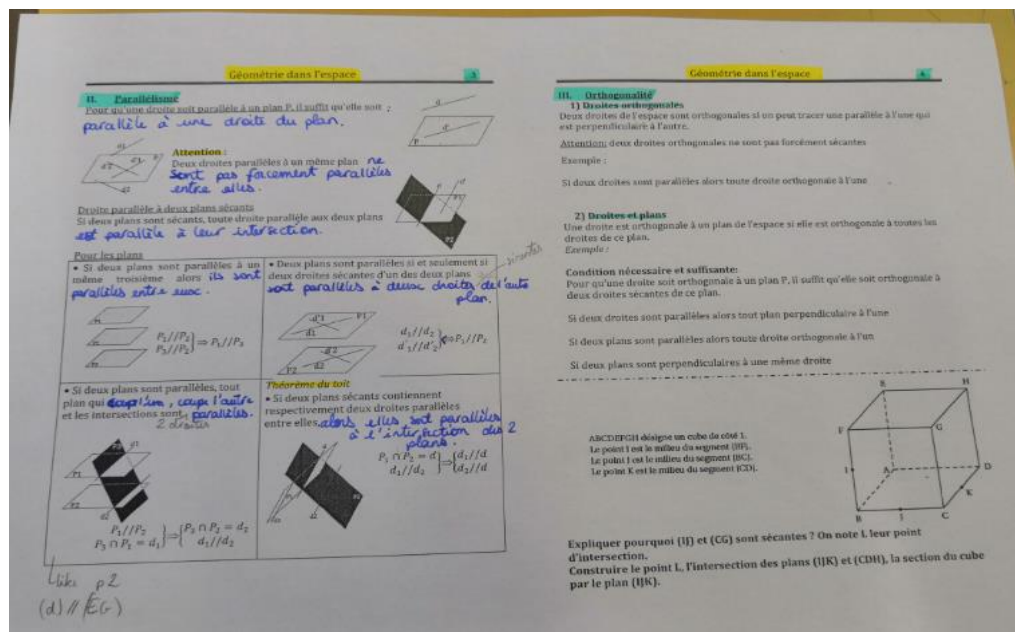 Géométrie dans l'espace
3
II. Parallélisme
Pour qu'une droite soit parallèle à un plan P, il suffit qu'elle soit :
parallèle à une droite du plan.
d
d'
P
d1
d'1
d'2
d2
Attention :
Deux droites parallèles à un même plan ne
sont pas forcement parallèles
entre elles.
Droite parallèle à deux plans sécants
Si deux plans sont sécants, toute droite parallèle aux deux plans
est parallèle à leur intersection.
Pour les plans
• Si deux plans sont parallèles à un
même troisième alors ils sont
parallèles entre eux.
P₁//P₂
P₃//P₂
⇒ P₁//P₃
• Deux plans sont parallèles si et seulement si
deux droites sécantes d'un des deux plans
sont parallèles à deux droites de l'autre
plan.
sécantes
d'1
P1
d1
d'2
P2
d2
d₁//d₂
d'₁//d'₂
⇔ P₁//P₂
• Si deux plans sont parallèles, tout
plan qui coupe l'un, coupe l'autre
et les intersections sont parallèles.
2 droites
P3
d1
P1
P2
d2
P₁//P₂
P₃ ∩ P₁ = d₁
⇒ P₃ ∩ P₂ = d₂
d₁//d₂
Théorème du toit
• Si deux plans sécants contiennent
respectivement deux droites parallèles
entre elles, alors elles sont parallèles
à l'intersection des 2
plans.
P₁ ∩ P₂ = d
d₁//d₂
⇒ d₁//d
d₂//d
p2
(d) // (EG)
Géométrie dans l'espace
4
III. Orthogonalité
1) Droites orthogonales
Deux droites de l'espace sont orthogonales si on peut tracer une parallèle à l'une qui
est perpendiculaire à l'autre.
Attention: deux droites orthogonales ne sont pas forcément sécantes
Exemple :
Si deux droites sont parallèles alors toute droite orthogonale à l'une
2) Droites et plans
Une droite est orthogonale à un plan de l'espace si elle est orthogonale à toutes les
droites de ce plan.
Exemple :
Condition nécessaire et suffisante:
Pour qu'une droite soit orthogonale à un plan P, il suffit qu'elle soit orthogonale à
deux droites sécantes de ce plan.
Si deux droites sont parallèles alors tout plan perpendiculaire à l'une
Si deux plans sont parallèles alors toute droite orthogonale à l'un
Si deux plans sont perpendiculaires à une même droite
ABCDEFGH désigne un cube de côté 1.
Le point I est le milieu du segment [BF].
Le point J est le milieu du segment [BC].
Le point K est le milieu du segment [CD].
E
H
F
G
I
A
D
K
B
J
C
Expliquer pourquoi (IJ) et (CG) sont sécantes ? On note L leur point
d'intersection.
Construire le point L, l'intersection des plans (IJK) et (CDH), la section du cube
par le plan (IJK).